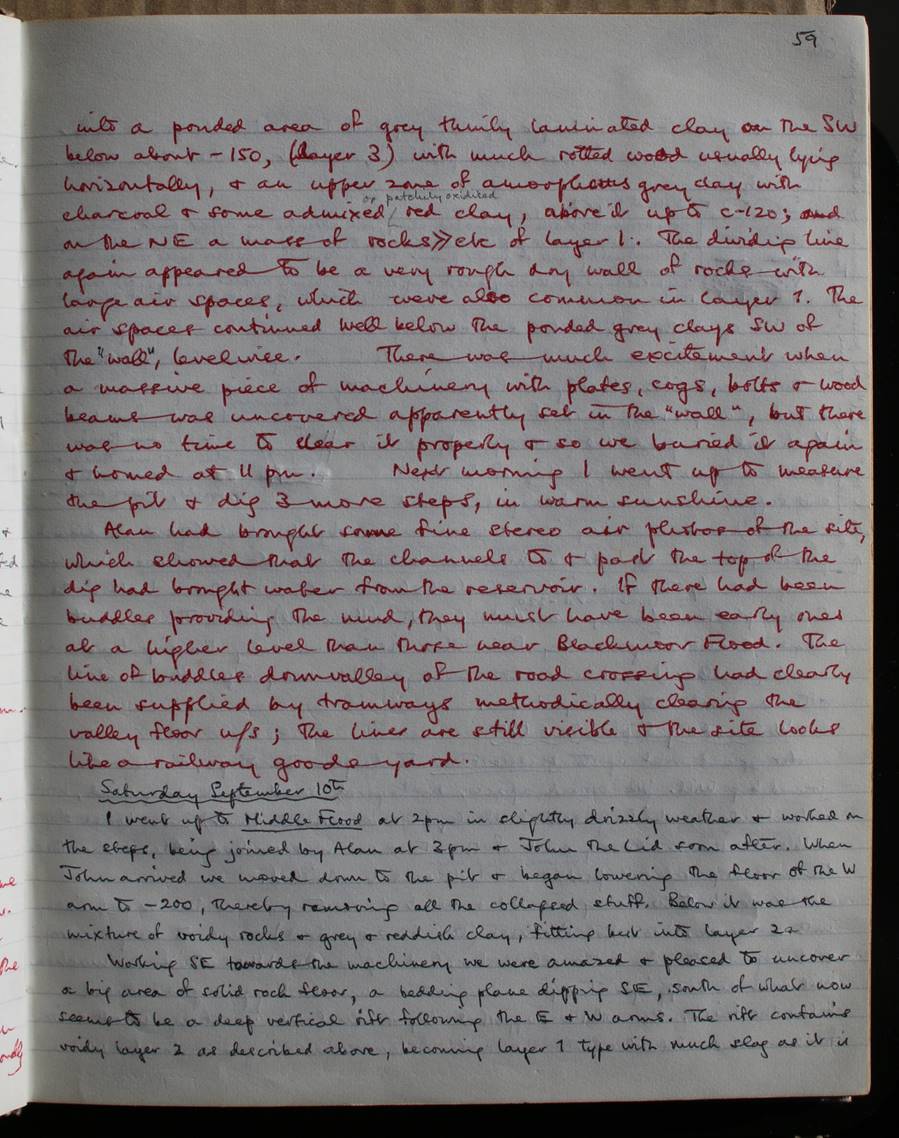 59
into a ponded area of grey thinly laminated clay on the SW
below about -150, (layer 3) with much rotted wood usually lying
horizontally, & an upper zone of amorphous grey clay with
or patchily oxidised
charcoal & some admixed red clay, above it up to c-120; and
on the NE a mass of rocks etc of layer 1. The dividing line
again appeared to be a very rough dry wall of rocks with
large air spaces, which were also common in layer 1. The
air spaces continued well below the ponded grey clays SW of
the "wall", levelwise. There was much excitement when
a massive piece of machinery with plates, cogs, bolts & wood
beams was uncovered apparently set in the "wall", but there
was no time to clear it properly & so we buried it again
& homed at 11 pm. Next morning I went up to measure
the pit & dig 3 more steps, in warm sunshine.
Alan had brought some fine stereo air photos of the site,
which showed that the channels to & past the top of the
dig had brought water from the reservoir. If there had been
buddles providing the mud, they must have been early ones
at a higher level than those near Blackmoor Flood. The
line of buddles downvalley of the road crossing had clearly
been supplied by tramways methodically clearing the
valley floor u/s; the lines are still visible & the site looks
like a railway goods yard.
Saturday September 10th
I went up to Middle Flood at 2pm in slightly drizzly weather & worked on
the steps, being joined by Alan at 3pm & John the Lid soon after. When
John arrived we moved down to the pit & began lowering the floor of the W
arm to -200, thereby removing all the collapsed stuff. Below it was the
mixture of voidy rocks & grey & reddish clay, fitting best into layer 2
Working SE towards the machinery we were amazed & pleased to uncover
a big area of solid rock floor, a bedding plane dipping SE, south of what now
seems to be a deep vertical rift following the E & W arms. The rift contains
voidy layer 2 as described above, becoming layer 1 type with much slag as it is